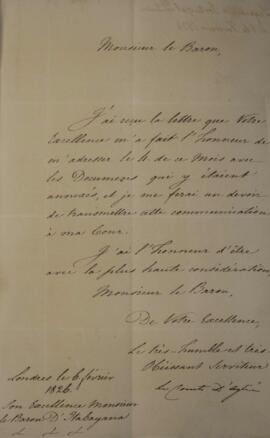 Monsieur le Baron,
J'ai reçu la lettre que Votre
Excellence m'a fait l'honneur de
m'adresser le 4 de ce Mois avec
les Documens qui y étaient
annexés, et je me ferai un devoir
de transmettre cette communication
à ma Cour.
J'ai l'honneur d'être
avec la plus haute considération,
Monsieur le Baron,
De Votre Excellence,
Le très-humble et très-
Obéissant Serviteur
Le Comte D'
Londres le 6 février
1826.
Son Excellence Monsieur
le Baron D'Itabayana